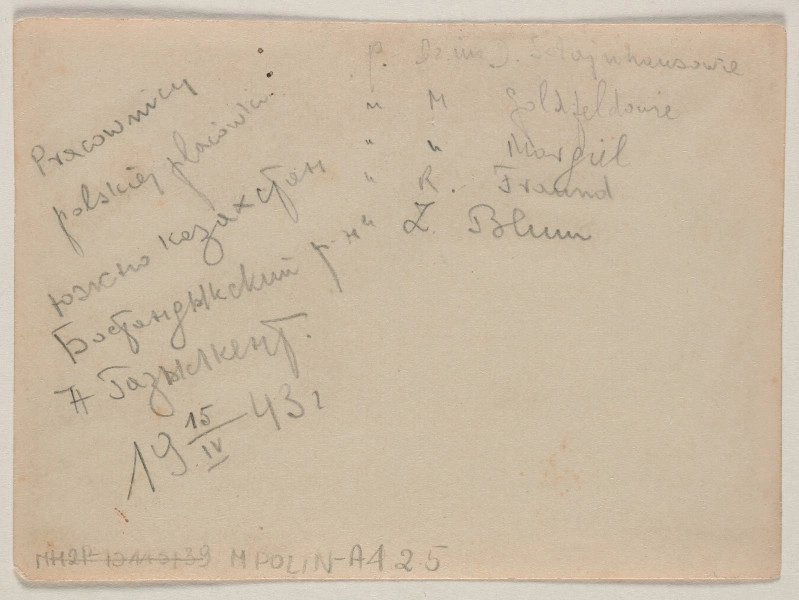 Pracownicy
polskiej placówki
южно казахстан
Бостандыкский р-н
п Газыкент.
19 15/IV 43 г
p. J. Sztajnhausowie
" M Goldfeldowie
" " Margiel
" R. Fraund
" Z Blum
MPOLIN-A125